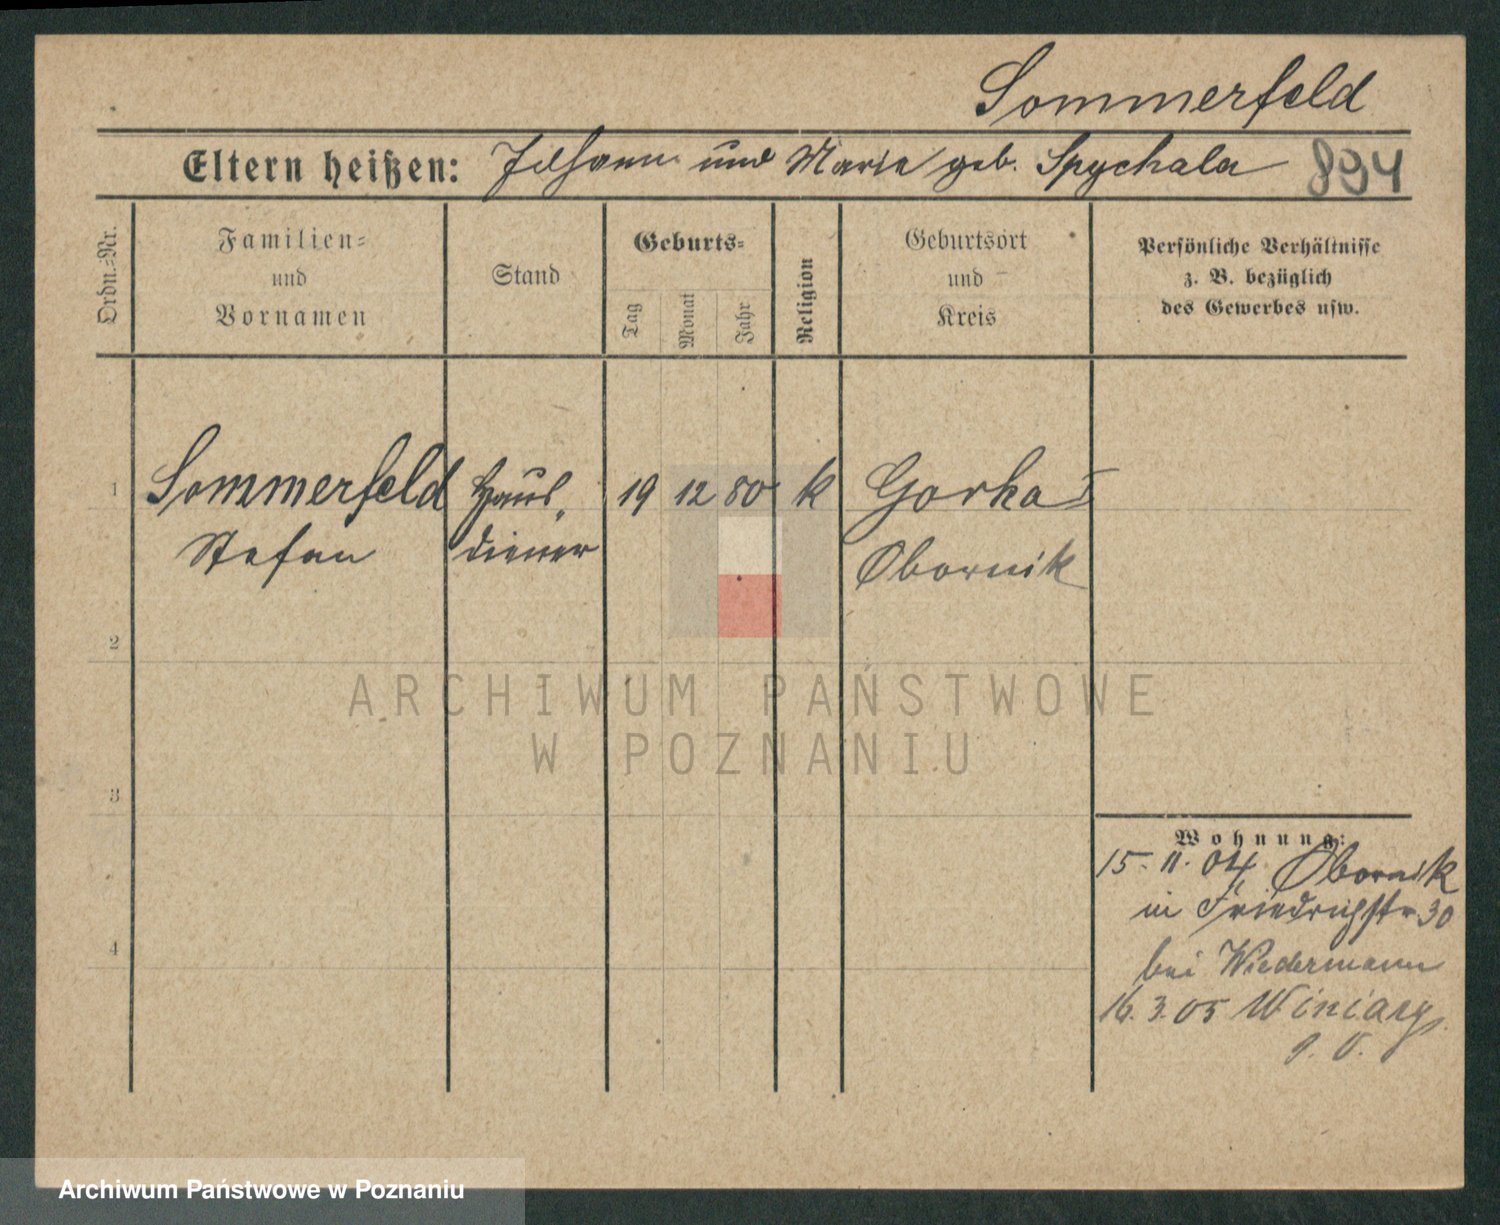 Sommerfeld
Eltern heißen: Johann und Marie geb. Spychala 894
Ordn.-Nr.
Familien-
und
Vornamen
Stand
Geburts-
Tag
Monat
Jahr
Religion
Geburtsort
und
Kreis
Persönliche Verhältnisse
z. B. bezüglich
des Gewerbes usw.
1 Sommerfeld Haus- 19 12 80 k Gorka
Stefan diener Obornik
2
3
4
ARCHIWUM PAŃSTWOWE
W POZNANIU
Wohnung:
15. 11. 04 Obornik
in Friedrichstr. 30
bei Wiedermann
16. 3. 05 Winiary
Archiwum Państwowe w Poznaniu